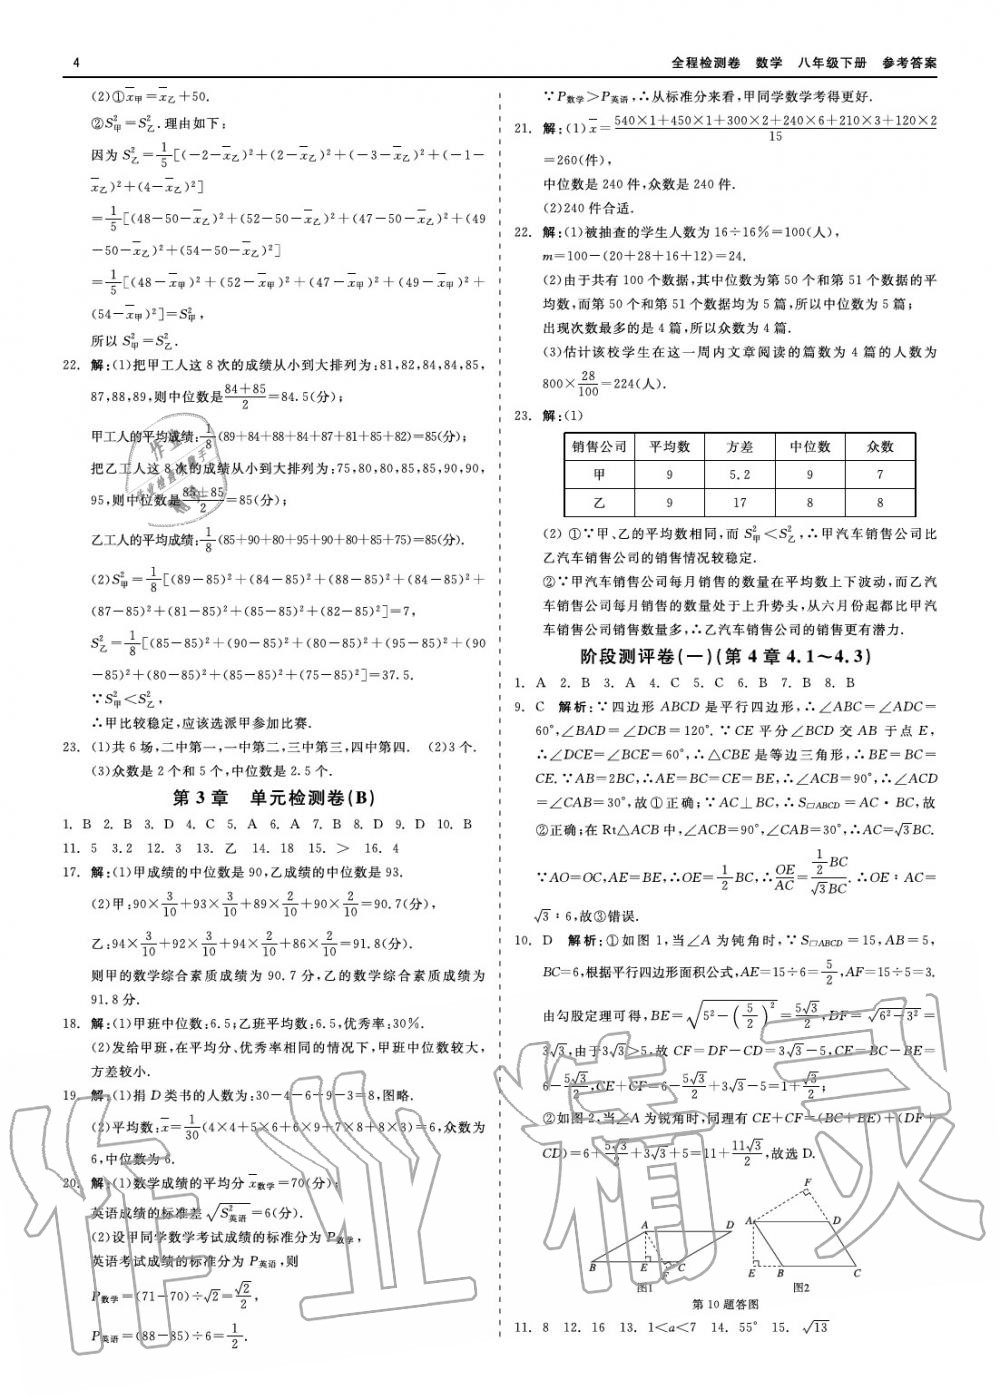 4
全程检测卷 数学 八年级下册 参考答案
(2)①x̄甲=x̄乙+50.
②S²甲=S²乙.理由如下:
因为 S²乙=1/5[(-2-x̄乙)²+(2-x̄乙)²+(-3-x̄乙)²+(-1-
x̄乙)²+(4-x̄乙)²]
=1/5[(48-50-x̄乙)²+(52-50-x̄乙)²+(47-50-x̄乙)²+(49
-50-x̄乙)²+(54-50-x̄乙)²]
=1/5[(48-x̄甲)²+(52-x̄甲)²+(47-x̄甲)²+(49-x̄甲)²+
(54-x̄甲)²]=S²甲,
所以 S²甲=S²乙.
22. 解:(1)把甲工人这8次的成绩从小到大排列为:81,82,84,84,85,
87,88,89,则中位数是(84+85)/2=84.5(分);
甲工人的平均成绩:1/8(89+84+88+84+87+81+85+82)=85(分);
把乙工人这8次的成绩从小到大排列为:75,80,80,85,85,90,90,
95,则中位数是(85+85)/2=85(分);
乙工人的平均成绩:1/8(85+90+80+95+90+80+85+75)=85(分).
(2)S²甲=1/8[(89-85)²+(84-85)²+(88-85)²+(84-85)²+
(87-85)²+(81-85)²+(85-85)²+(82-85)²]=7,
S²乙=1/8[(85-85)²+(90-85)²+(80-85)²+(95-85)²+(90
-85)²+(80-85)²+(85-85)²+(75-85)²]=37.5.
∵S²甲<S²乙,
∴甲比较稳定,应该选派甲参加比赛.
23. (1)共6场,二中第一,一中第二,三中第三,四中第四. (2)3个.
(3)众数是2个和5个,中位数是2.5个.
第3章 单元检测卷(B)
1. B 2. B 3. D 4. C 5. A 6. A 7. B 8. D 9. D 10. B
11. 5 3.2 12. 3 13. 乙 14. 18 15. > 16. 4
17. 解:(1)甲成绩的中位数是90,乙成绩的中位数是93.
(2)甲:90×3/10+93×3/10+89×2/10+90×2/10=90.7(分),
乙:94×3/10+92×3/10+94×2/10+86×2/10=91.8(分).
则甲的数学综合素质成绩为90.7分,乙的数学综合素质成绩为
91.8分.
18. 解:(1)甲班中位数:6.5;乙班平均数:6.5,优秀率:30%.
(2)发给甲班,在平均分、优秀率相同的情况下,甲班中位数较大,
方差较小.
19. 解:(1)捐D类书的人数为:30-4-6-9-3=8,图略.
(2)平均数:x̄=1/30(4×4+5×6+6×9+7×8+8×3)=6,众数为
6,中位数为6.
20. 解:(1)数学成绩的平均分 x̄数学=70(分);
英语成绩的标准差 √S²英语=6(分).
(2)设甲同学数学考试成绩的标准分为P数学,
英语考试成绩的标准分为P英语,则
P数学=(71-70)÷√2=√2/2,
P英语=(88-85)÷6=1/2.
∵P数学>P英语,∴从标准分来看,甲同学数学考得更好.
21. 解:(1)x̄=(540×1+450×1+300×2+240×6+210×3+120×2)/15
=260(件),
中位数是240件,众数是240件.
(2)240件合适.
22. 解:(1)被抽查的学生人数为16÷16%=100(人),
m=100-(20+28+16+12)=24.
(2)由于共有100个数据,其中位数为第50个和第51个数据的平
均数,而第50个和第51个数据均为5篇,所以中位数为5篇;
出现次数最多的是4篇,所以众数为4篇.
(3)估计该校学生在这一周内文章阅读的篇数为4篇的人数为
800×28/100=224(人).
23. 解:(1)
销售公司 平均数 方差 中位数 众数
甲 9 5.2 9 7
乙 9 17 8 8
(2) ①∵甲、乙的平均数相同,而 S²甲<S²乙,∴甲汽车销售公司比
乙汽车销售公司的销售情况较稳定.
②∵甲汽车销售公司每月销售的数量在平均数上下波动,而乙汽
车销售公司每月销售的数量处于上升势头,从六月份起都比甲汽
车销售公司销售数量多,∴乙汽车销售公司的销售更有潜力.
阶段测评卷(一)(第4章4.1~4.3)
1. A 2. B 3. A 4. C 5. C 6. B 7. B 8. B
9. C 解析:∵四边形ABCD是平行四边形,∴∠ABC=∠ADC=
60°,∠BAD=∠DCB=120°.∵CE平分∠BCD交AB于点E,
∴∠DCE=∠BCE=60°,∴△CBE是等边三角形,∴BE=BC=
CE.∵AB=2BC,∴AE=BC=CE=BE,∴∠ACB=90°,∴∠ACD
=∠CAB=30°,故①正确;∵AC⊥BC,∴S▱ABCD=AC·BC,故
②正确;在Rt△ACB中,∠ACB=90°,∠CAB=30°,∴AC=√3BC.
∵AO=OC,AE=BE,∴OE=1/2BC,∴OE/AC=(1/2BC)/(√3BC).∴OE∶AC=
√3∶6,故③错误.
10. D 解析:①如图1,当∠A为钝角时,∵S▱ABCD=15,AB=5,
BC=6,根据平行四边形面积公式,AE=15÷6=5/2,AF=15÷5=3.
由勾股定理可得,BE=√(5²-(5/2)²)=5√3/2,DF=√(6²-3²)=
3√3,由于3√3>5,故CF=DF-CD=3√3-5,CE=BC-BE=
6-5√3/2,CE+CF=6-5√3/2+3√3-5=1+√3/2;
②如图2,当∠A为锐角时,同理有CE+CF=(BC+BE)+(DF+
CD)=6+5√3/2+3√3+5=11+11√3/2,故选D.
A D B E F C 图1
F A D E B C 图2
第10题答图
11. 8 12. 16 13. 1<a<7 14. 55° 15. √13
作业精灵